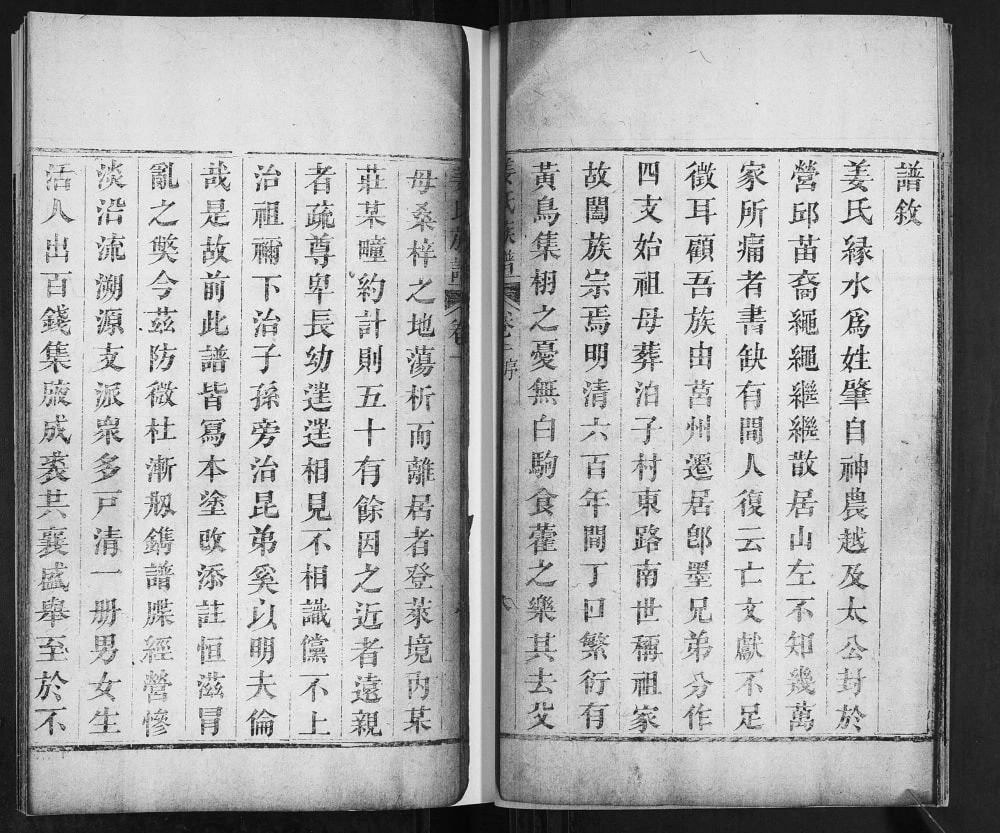 譜敘
姜氏緣水爲姓肇自神農越及太公封於
營邱苗裔繩繩繼繼散居山左不知幾萬
家所痛者書缺有間人復云亡文獻不足
徵耳顧吾族由莒州遷居卽墨兄弟分作
四支始祖母葬泊子村東路南世稱祖家
故闔族宗焉明清六百年間丁口繁衍有
黃鳥集栩之憂無白駒食藿之樂其去父
姜氏族譜 卷一 序
母桑梓之地蕩析而離居者登萊境內某
莊某疃約計則五十有餘因之近者遠親
者疏尊卑長幼逞逞相見不相識儻不上
治祖禰下治子孫旁治昆弟奚以明大倫
哉是故前此譜皆寫本塗改添註恒滋冒
亂之獘今茲防微杜漸剏鐫譜牒經營慘
淡沿流溯源支派衆多戸清一册男女生
活人出百錢集腋成裘共襄盛舉至於不